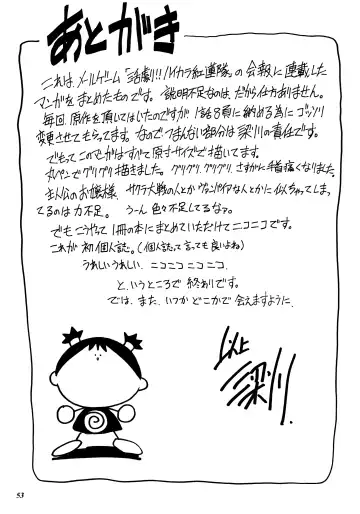 あとがき
これは、メールゲーム『活劇!!ハイカラ紅連隊』の会報に連載した
マンガをまとめたものです。説明不足なのは、だから仕方ありません。
毎回、原作を頂いてはいたのですが、1話8頁に納める為にゴッソリ
変更させてもらってます。なので、つまんない部分は深川の責任です。
でもってこのマンガはすべて原寸サイズで描いてます。
丸ペンでグリグリ描きました。グリグリ、グリグリ、さすがに手首痛くなりました。
主人公のお嬢様、サクラ大戦の人とかヴァンパイアな人とかに似ちゃってしまっ
てるのは力不足。うーん色々不足してるなァ。
でもこうやって1冊の本にまとめていただけてニコニコです。
これが初個人誌。(個人誌って言っても良いよね)
うれしいうれしい、ニコニコニコニコ。
と、いうところで終わりです。
では、また、いつかどこかで会えますように。
以上
深川.
53